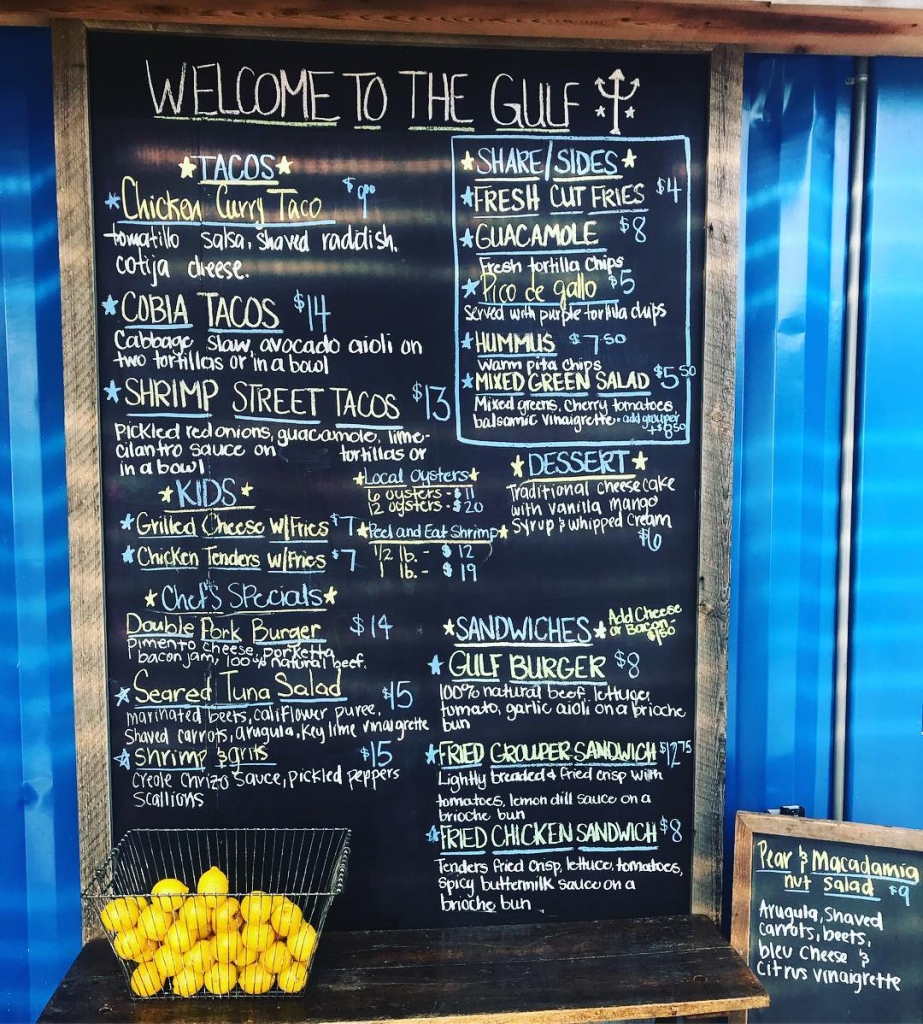 WELCOME TO THE GULF
TACOS
Chicken Curry Taco $9.00
tomatillo salsa, shaved raddish,
cotija cheese.
COBIA TACOS $14
Cabbage slaw, avocado aioli on
two tortillas or in a bowl
SHRIMP STREET TACOS $13
Pickled red onions, guacamole, lime-
cilantro sauce on tortillas or
in a bowl
SHARE/SIDES
FRESH CUT FRIES $4
GUACAMOLE $8
Fresh tortilla chips
Pico de gallo $5
Served with purple tortilla chips
HUMMUS $7.50
Warm pita chips
MIXED GREEN SALAD $5.50
Mixed greens, cherry tomatoes
balsamic vinaigrette. add grouper
+$8.50
KIDS
Grilled Cheese w/Fries $7
Chicken Tenders w/Fries $7
Local Oysters
6 oysters - $11
12 oysters - $20
Peel and Eat Shrimp
1/2 lb. - $12
1 lb. - $19
DESSERT
Traditional cheesecake
with vanilla mango
syrup & whipped cream
$6
Chef's Specials
Double Pork Burger $14
Pimento cheese, porketta,
bacon jam, 100% natural beef.
Seared Tuna Salad $15
marinated beets, califlower puree,
Shaved carrots, arugula, Key lime vinaigrette
Shrimp & grits $15
Creole Chrizo sauce, pickled peppers
scallions
SANDWICHES Add Cheese
or Bacon-
$1.50
GULF BURGER $8
100% natural beef, lettuce,
tomato, garlic aioli on a brioche
bun
FRIED GROUPER SANDWICH $12.75
Lightly breaded & fried crisp with
tomatoes, lemon dill sauce on a
brioche bun
FRIED CHICKEN SANDWICH $8
Tenders fried crisp, lettuce, tomatoes,
spicy buttermilk sauce on a
brioche bun
Pear & Macadamia
nut salad $9
Arugula, Shaved
carrots, beets,
bleu cheese &
citrus vinaigrette